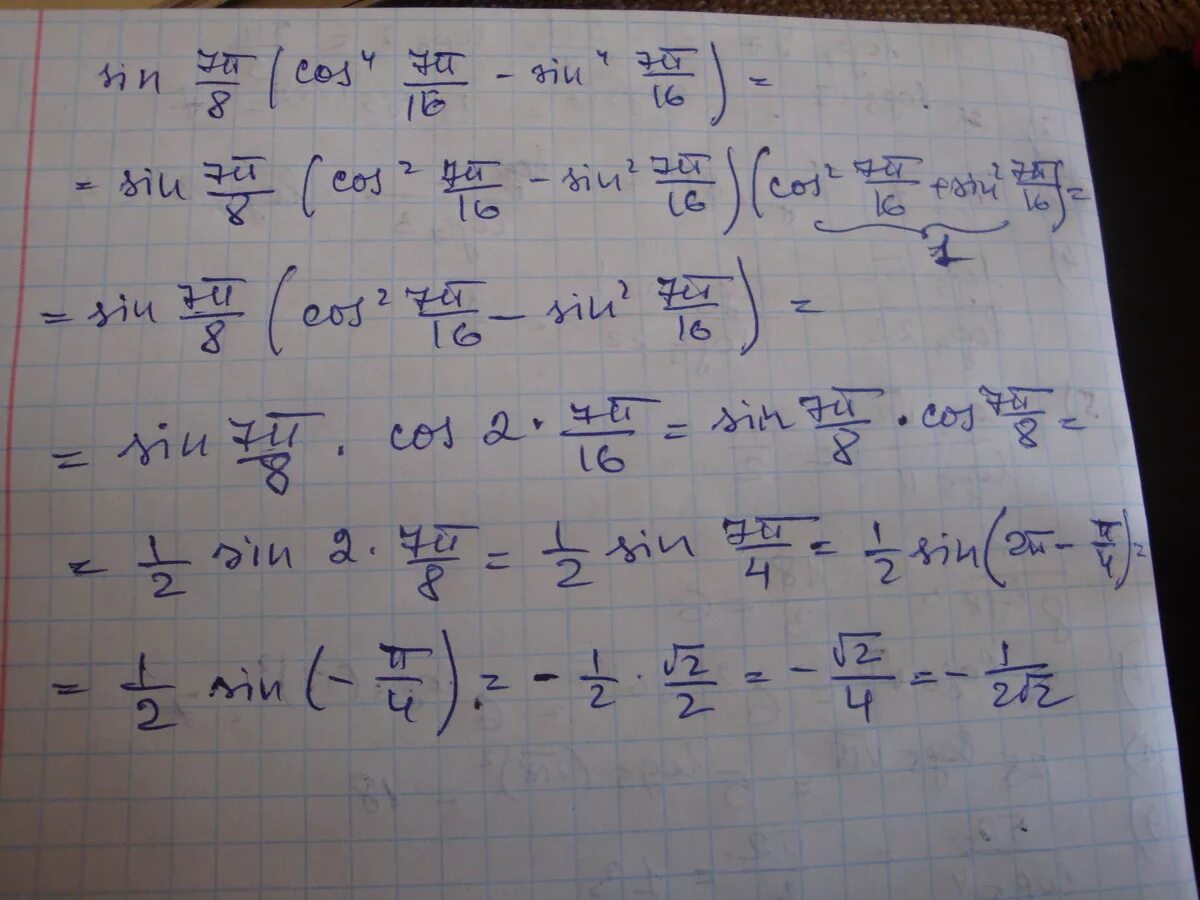 sin 7π/8 (cos⁴ 7π/16 - sin⁴ 7π/16) =
= sin 7π/8 (cos² 7π/16 - sin² 7π/16)(cos² 7π/16 + sin² 7π/16) =
1
= sin 7π/8 (cos² 7π/16 - sin² 7π/16) =
= sin 7π/8 · cos 2 · 7π/16 = sin 7π/8 · cos 7π/8 =
= 1/2 sin 2 · 7π/8 = 1/2 sin 7π/4 = 1/2 sin(2π - π/4) =
= 1/2 sin(-π/4) = -1/2 · √2/2 = -√2/4 = -1/2√2